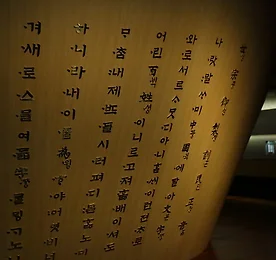 나랏말ᄊᆞ미 國귁에달아文문字ᄍᆞᆼ
와로서르ᄉᆞᄆᆞᆺ디아니ᄒᆞᆯᄊᆡ이런젼ᄎᆞ로
어린百ᄇᆡᆨ姓셔ᇰ이니르고져호ᇙ배이셔도
ᄆᆞᄎᆞᆷ내제ᄠᅳ들시러펴디몯ᄒᆞᇙ노미
하니라내이ᄅᆞᆯ爲윙ᄒᆞ야어엿비너
겨새로스믈여듧字ᄍᆞᆼᄅᆞᆯᄆᆡᇰᄀᆞ노니